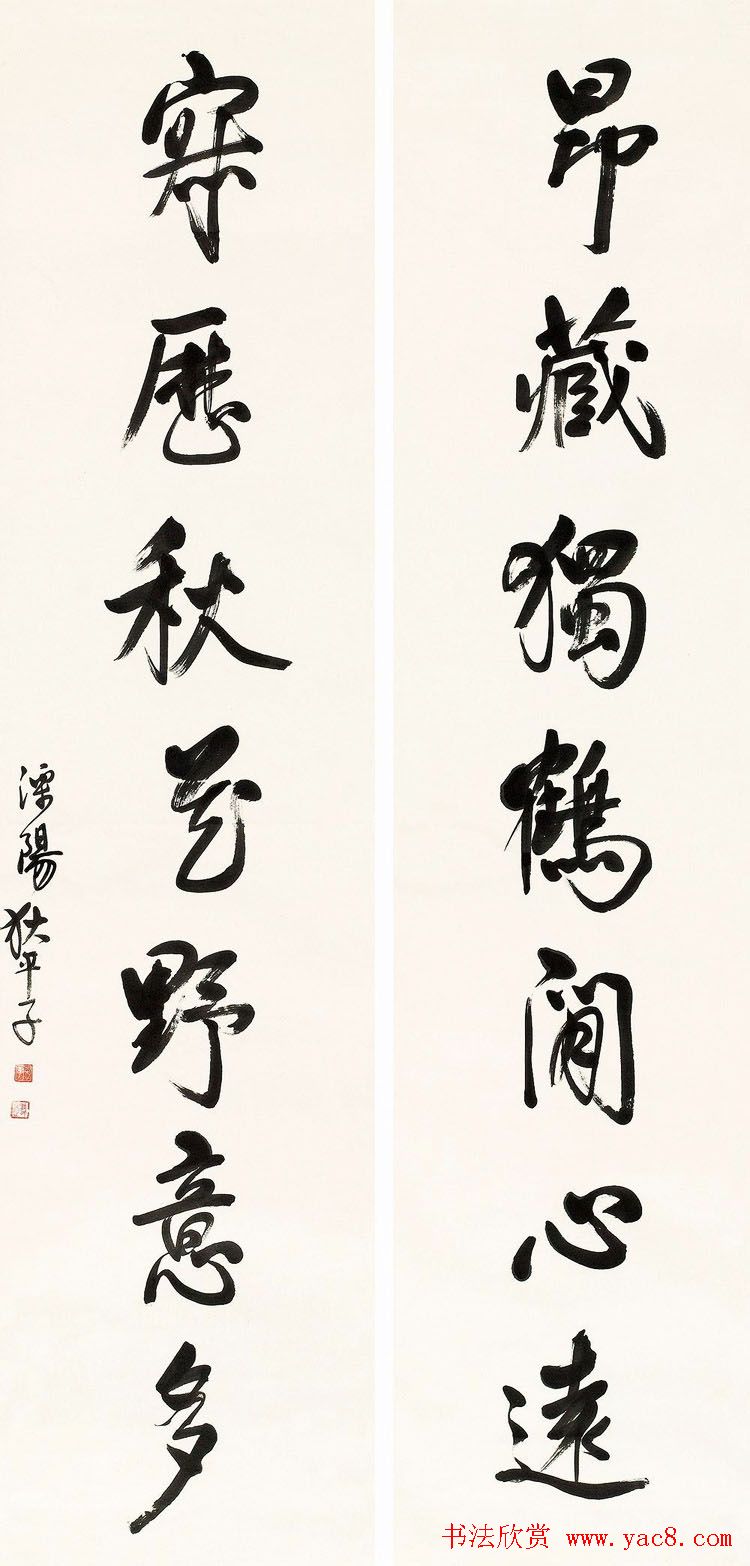 昂藏獨鶴閒心遠
寂歷秋花野意多
溧陽狄平子
书法欣赏 www.yac8.com